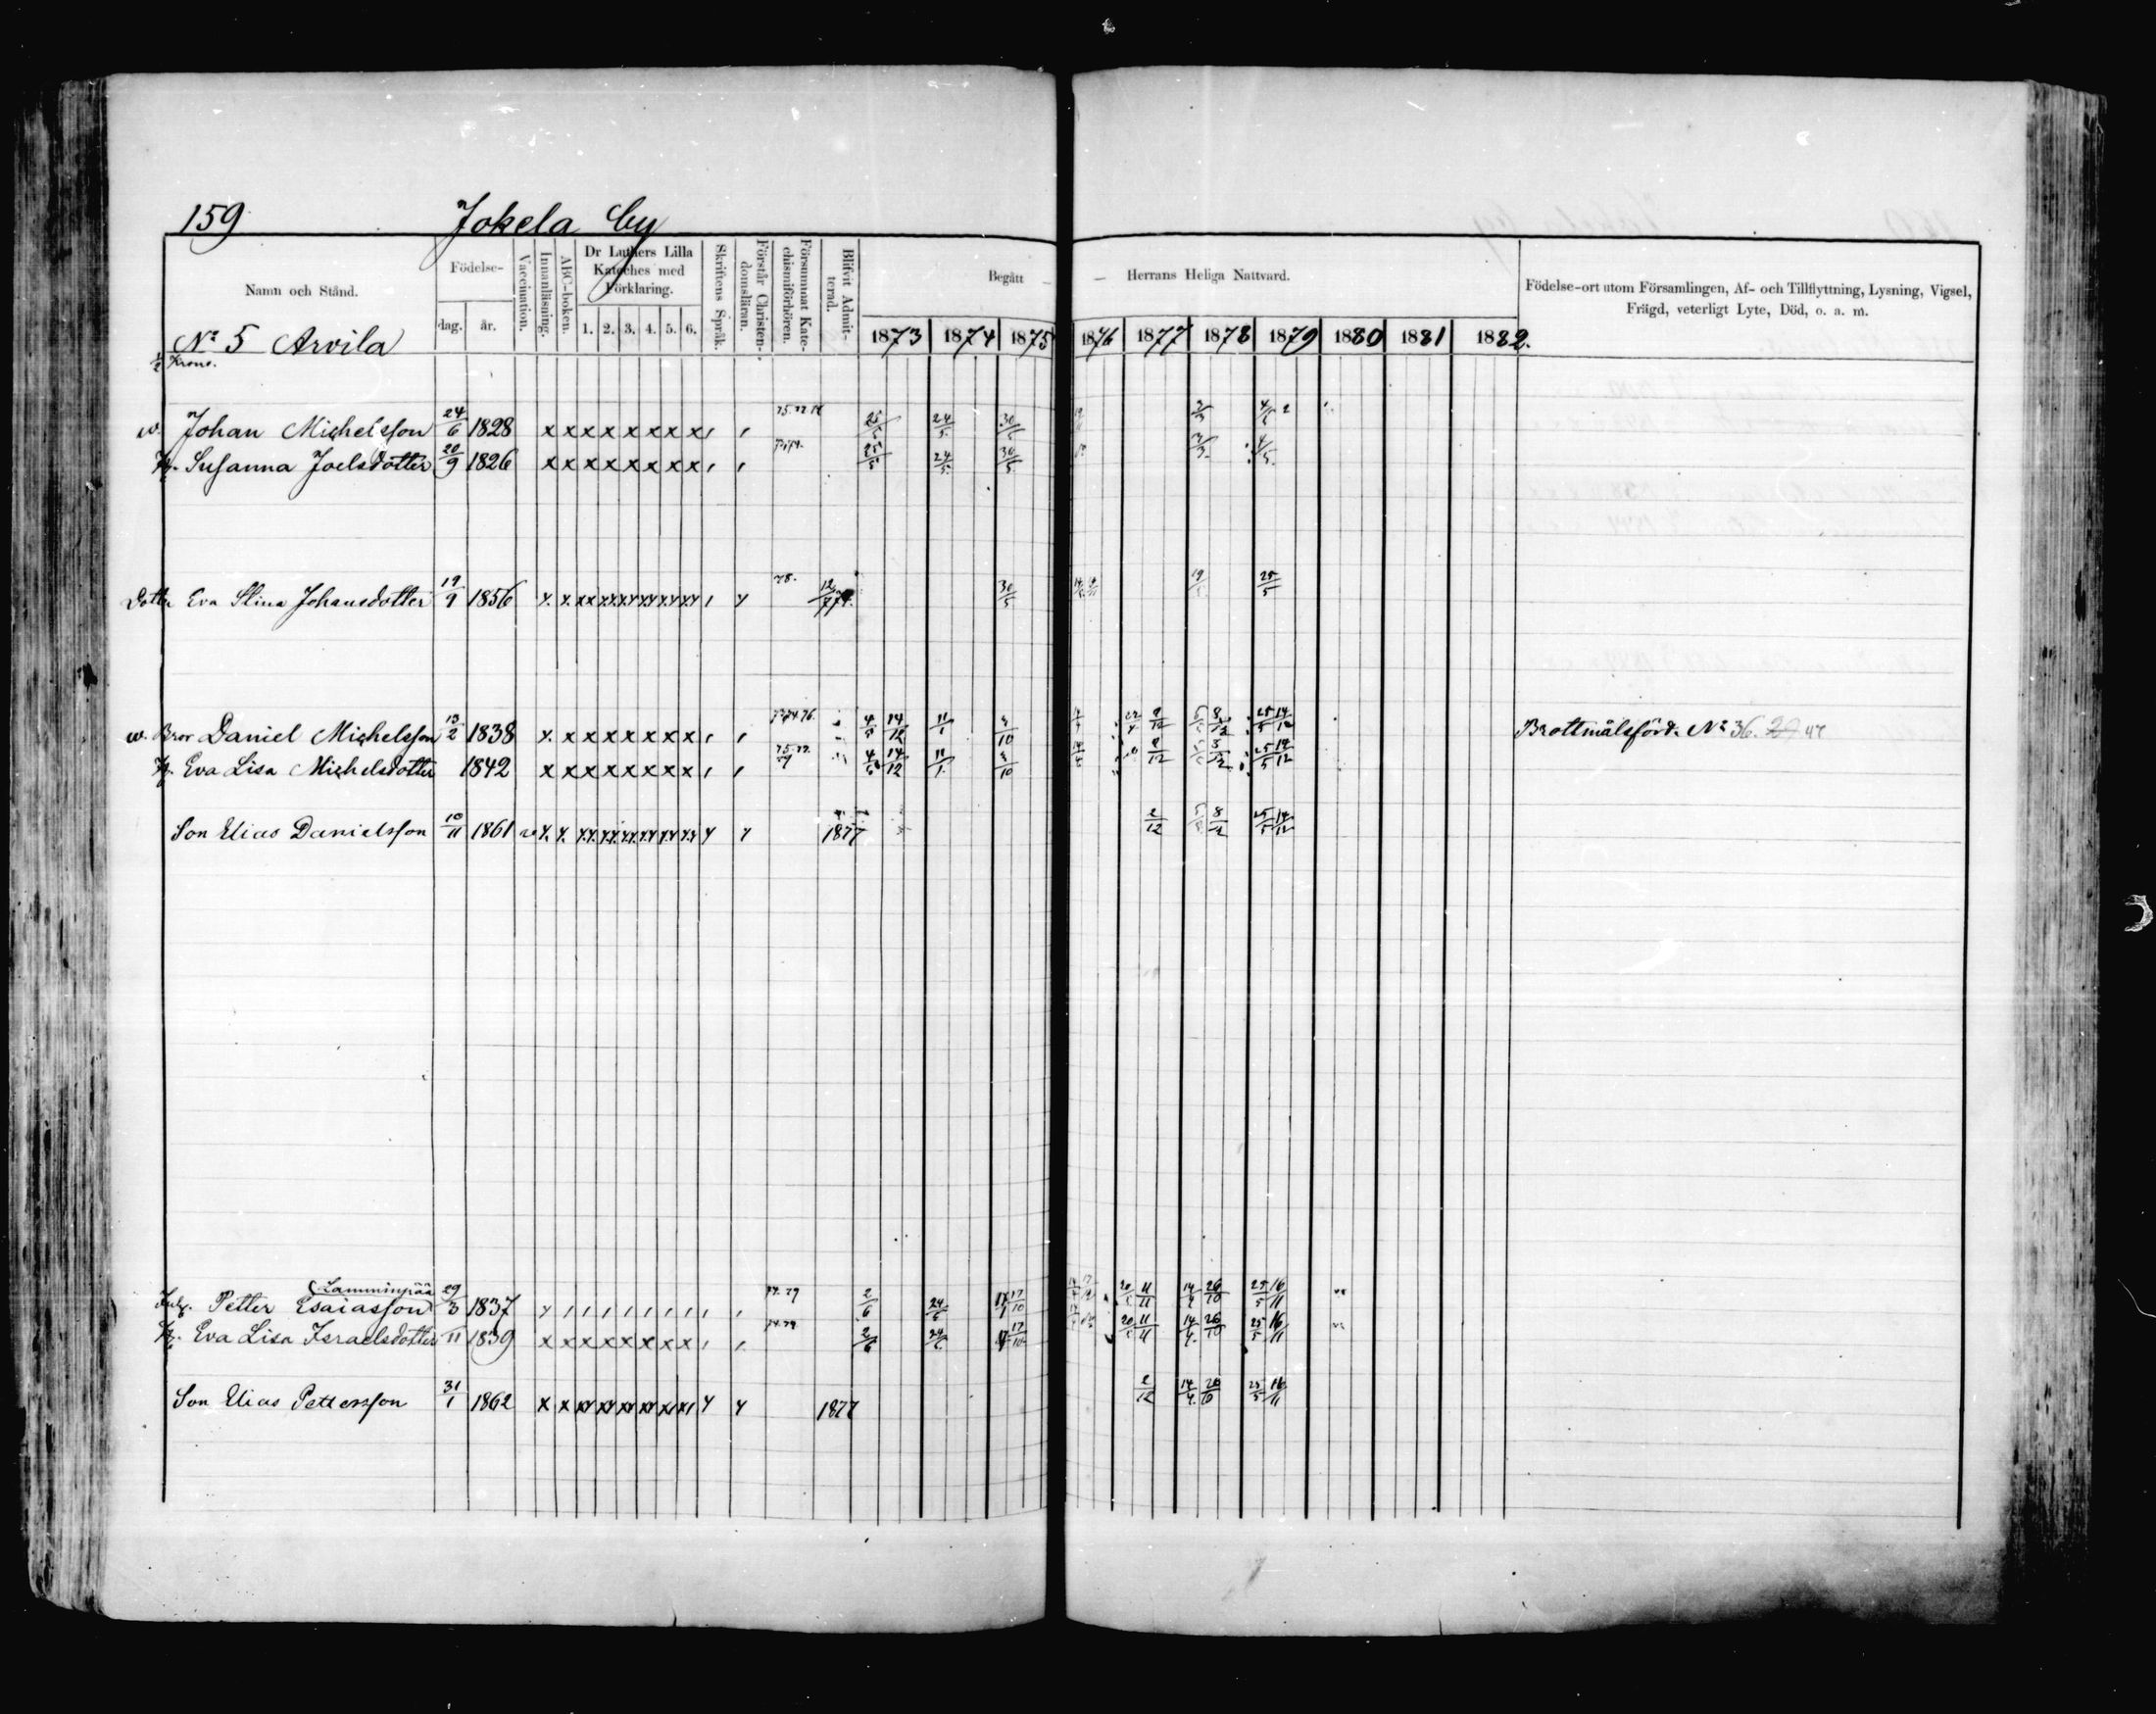 159 Jokela by
Namn och Ständ.
Födelse-
dag. år.
Vaccination.
Innanläsning.
ABC-boken.
Dr Luthers Lilla
Kateches med
Förklaring.
1. 2. 3. 4. 5. 6.
Skriftens Språk.
Förstår Christen-
domsläran.
Försummat Kate-
chismiförhören.
Blifvit Admit-
terad.
Begått — — Herrans Heliga Nattvard.
1873 1874 1875 1876 1877 1878 1879 1880 1881 1882.
Födelse-ort utom Församlingen, Af- och Tillflyttning, Lysning, Vigsel,
Frägd, veterligt Lyte, Död, o. a. m.
No 5 Arvila
1/2 Krono.
w. Johan Michelsson 24/6 1828 x x x x x x x x 25/5 24/5 30/5 4/5
H. Susanna Joelsdotter 20/9 1826 x x x x x x x x 25/5 24/5 30/5 4/5
Dotter Eva Stina Johansdotter 19/9 1856 78. 30/5 25/5
w. Bror Daniel Michelsson 13/2 1838 x x x x x x x x 14/12 11/1 25/5 14/12 Brottmålsförd. No 36.
H. Eva Lisa Michelsdotter 1842 x x x x x x x x 14/12 11/1 25/5 14/12
Son Elias Danielsson 10/11 1861 1877 2/12 25/5 14/12
Lamminpää
Petter Esaiasson 29/3 1837 74.79 2/6 17/10 11/11 14/4 26/10 25/5 16/11
H. Eva Lisa Israelsdotter 11 1839 x x x x x x x x 74.79 2/6 17/10 11/11 14/4 26/10 25/5 16/11
Son Elias Pettersson 31/1 1862 x x 1877 2/12 14/4 26/10 25/5 16/11